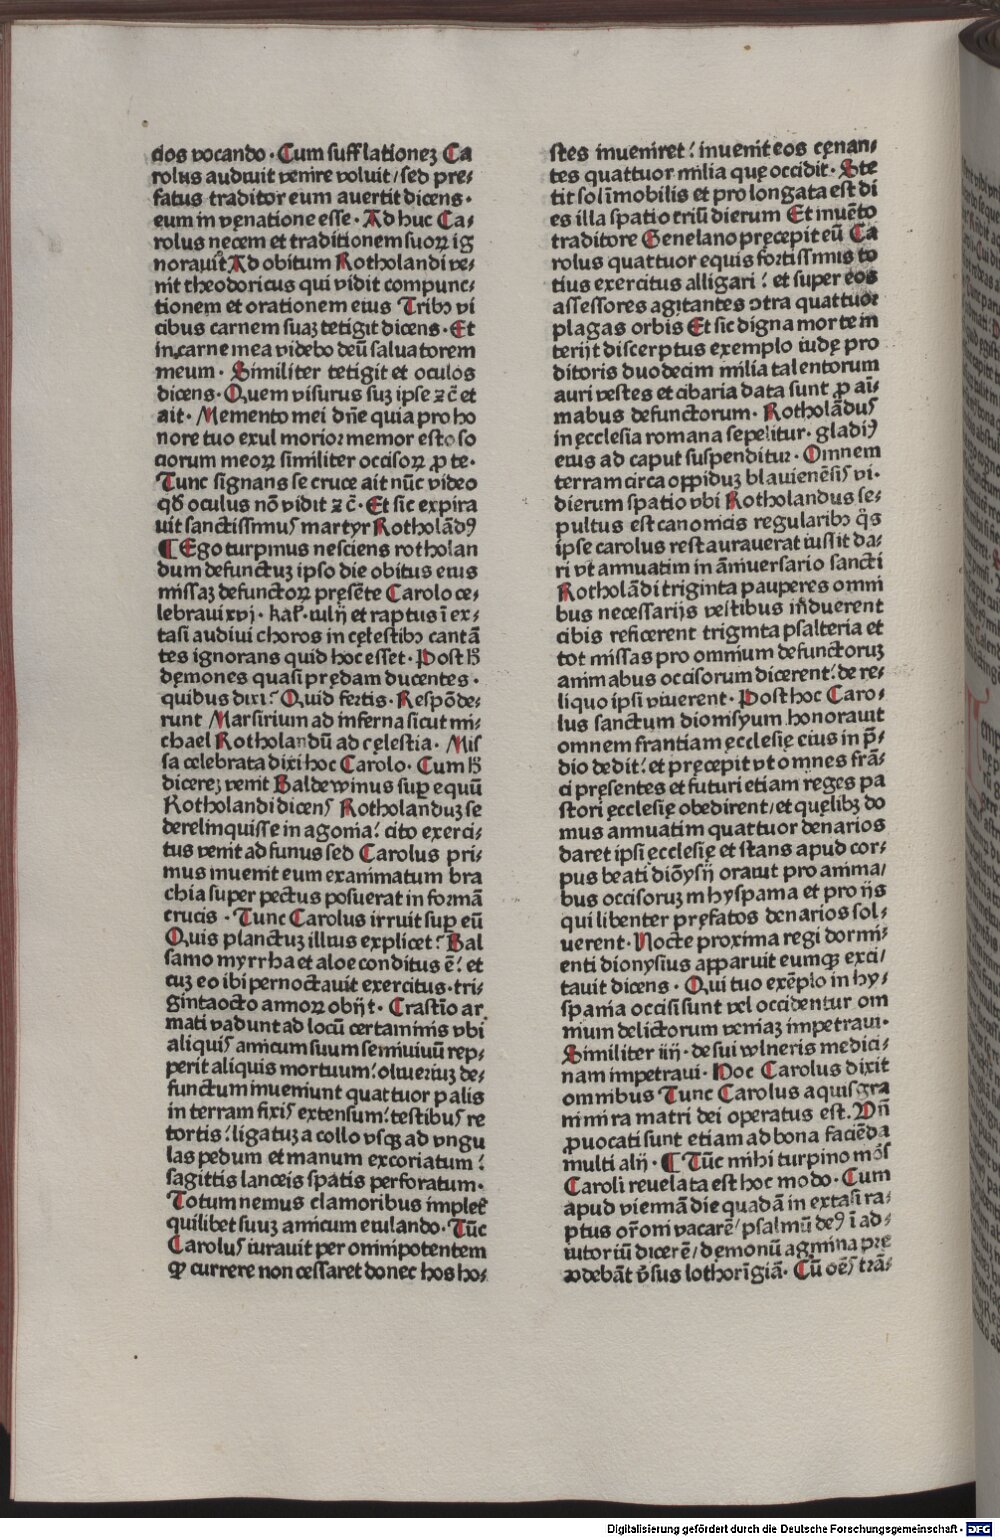 cios vocando · Cum sufflationeꝫ Ca
rolus audiuit venire voluit / sed pre⸗
fatus traditor eum auertit dicens ·
eum in vęnatione esse · Ad huc Ca⸗
rolus necem et traditionem suoꝝ ig
norauit Ad obitum Rotholandi ve⸗
nit theodoricus qui vidit compunc⸗
tionem et orationem eius Tribꝫ vi
cibus carnem suaꝫ tetigit dicens · Et
in carne mea videbo deū saluatorem
meum · Similiter tetigit et oculos
dicens · Quem visurus suꝫ ipse ⁊ c̄ et
ait · Memento mei dn̄e quia pro ho
nore tuo exul morior memor esto so
ciorum meoꝝ similiter occisoꝝ ꝓ te ·
Tunc signans se cruce ait nūc video
qd̄ oculus nō vidit ⁊ c̄ · Et sic expira
uit sanctissimus martyr Rotholādꝰ
¶ Ego turpinus nesciens rotholan
dum defunctuꝫ ipso die obitus eius
missaꝫ defunctoꝝ pręsēte Carolo ce⸗
lebraui xvj · kal̄ · iulij et raptus ī ex⸗
tasi audiui choros in cęlestibꝫ cantā
tes ignorans quid hoc esset · Post h̄
dęmones quasi prędam ducentes ·
quibus dixi ? Quid fertis · Respōde⸗
runt Marsirium ad inferna sicut mi⸗
chael Rotholandū ad cęlestia · Mis
sa celebrata dixi hoc Carolo · Cum h̄
dicereꝫ venit Baldewinus suꝑ equū
Rotholandi dicens Rotholanduꝫ se
derelinquisse in agonia ? cito exerci⸗
tus venit ad funus sed Carolus pri⸗
mus inuenit eum exanimatum bra
chia super pectus posuerat in formā
crucis · Tunc Carolus irruit suꝑ eū
Quis planctuꝫ illius explicet ? Bal
samo myrrha et aloe conditus ē ? et
cuꝫ eo ibi pernoctauit exercitus · tri⸗
gintaocto annoꝝ obijt · Crastīo ar
mati vadunt ad locū certaminis vbi
aliquis amicum suum semiuiuū rep⸗
perit aliquis mortuum ? oliueriuꝫ de⸗
functum inueniunt quattuor palis
in terram fixis extensum ? testibus re
tortis ? ligatuꝫ a collo vsqꝫ ad vngu
las pedum et manum excoriatum ?
sagittis lanceis spatis perforatum ·
Totum nemus clamoribus implet̄
quilibet suuꝫ amicum eiulando · Tūc
Carolus iurauit per omnipotentem
ꝙ currere non cessaret donec hos ho⸗
stes inueniret ? inuenit eos cęnan⸗
tes quattuor milia quę occidit · Ste
tit sol īmobilis et prolongata est di
es illa spatio triū dierum Et inuēto
traditore Genelano pręcepit eū Ca
rolus quattuor equis fortissimis to
tius exercitus alligari ? et super eos
assessores agitantes ↄtra quattuor
plagas orbis Et sic digna morte in
terijt discerptus exemplo iudę pro
ditoris duodecim milia talentorum
auri vestes et cibaria data sunt ꝓ aī⸗
mabus defunctorum · Rotholādus
in ęcclesia romana sepelitur · gladiꝰ
eius ad caput suspenditur · Omnem
terram circa oppiduꝫ blauienēsis vi·
dierum spatio vbi Rotholandus se⸗
pultus est canonicis regularibꝫ q̄s
ipse carolus restaurauerat iussit da⸗
ri vt annuatim in āniuersario sancti
Rotholādi triginta pauperes omni
bus necessarijs vestibus īduerent
cibis reficerent triginta psalteria et
tot missas pro omnium defunctoruꝫ
animabus occisorum dicerent ? de re⸗
liquo ipsi viuerent · Post hoc Caro⸗
lus sanctum dionisyum honorauit
omnem frantiam ęcclesię eius in p̄⸗
dio dedit ? et pręcepit vt omnes frā⸗
ci pręsentes et futuri etiam reges pa
stori ęcclesię obedirent / et quęlibꝫ do
mus annuatim quattuor denarios
daret ipsi ęcclesię et stans apud cor⸗
pus beati diōysij orauit pro anima/
bus occisoruꝫ in hyspania et pro ijs
qui libenter pręfatos denarios sol⸗
uerent · Nocte proxima regi dormi⸗
enti dionysius apparuit eumqꝫ exci/
tauit dicens · Qui tuo exēplo in hy⸗
spania occisi sunt vel occidentur om
nium delictorum veniaꝫ impetraui ·
Similiter iiij · de sui vlneris medici⸗
nam impetraui · Hoc Carolus dixit
omnibus Tunc Carolus aquisgra
ni mira matri dei operatus est. Vn̄
ꝓuocati sunt etiam ad bona faciēda
multi alij · ¶ Tūc mihi turpino mōs
Caroli reuelata est hoc modo · Cum
apud viennā die quadā in extasi ra⸗
ptus or̄oni vacarē / psalmū deꝰ ī ad⸗
iutoriū dicerē / dęmonū agmina prę
⁊odebāt v̄sus lothorīgiā · Cū oēs trā⸗
Digitalisierung gefördert durch die Deutsche Forschungsgemeinschaft - DFG